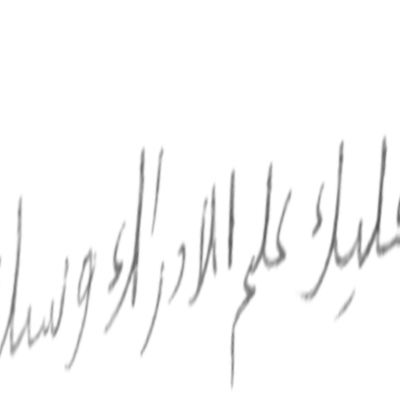 عليك علم الادراك